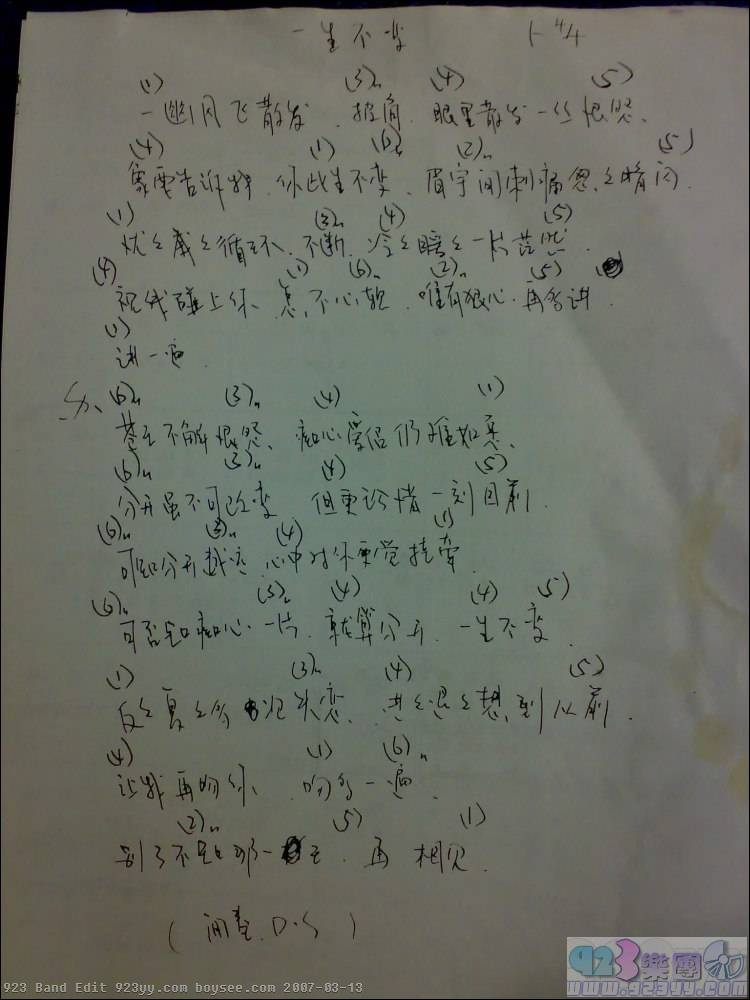 一生不变 1=#4
(1) (3)m (4) (5)
一幽风飞散发 披肩 眼里散发一丝恨怨、
(4) (1) (6)m (2)m (5)
象要告诉我 你此生不变 眉宇间刺痛忽忽暗闪
(1) (3)m (4) (5)
忧忧戚戚循环 不断 冷冷暖暖一片茫然
(4) (1) (6)m (2)m (5)
视线碰上你 怎不心软 唯有狠心 再多讲
(1)
讲一遍
(6)m (3)m (4) (1)
苍天不解恨怨、痴心爱侣仍难如愿、
(6)m (3)m (4) (5)
分开虽不可改变 但更珍惜一刻目前
(6)m (3)m (4) (1)
可知分开越远 心中对你更觉挂牵
(6)m (3)m (4) (4) (5)
可否知痴心一片 就算分开 一生不变
(1) (3)m (4) (5)
反反复复多次失恋、进进退退想到从前
(4) (1) (6)m
让我再吻你 吻多一遍
(2)m (5) (1)
别了不知哪一天 再相见
(间奏、D.S)
923 Band Edit 923yy.com boysee.com 2007-03-13
923樂團
www.923yy.com